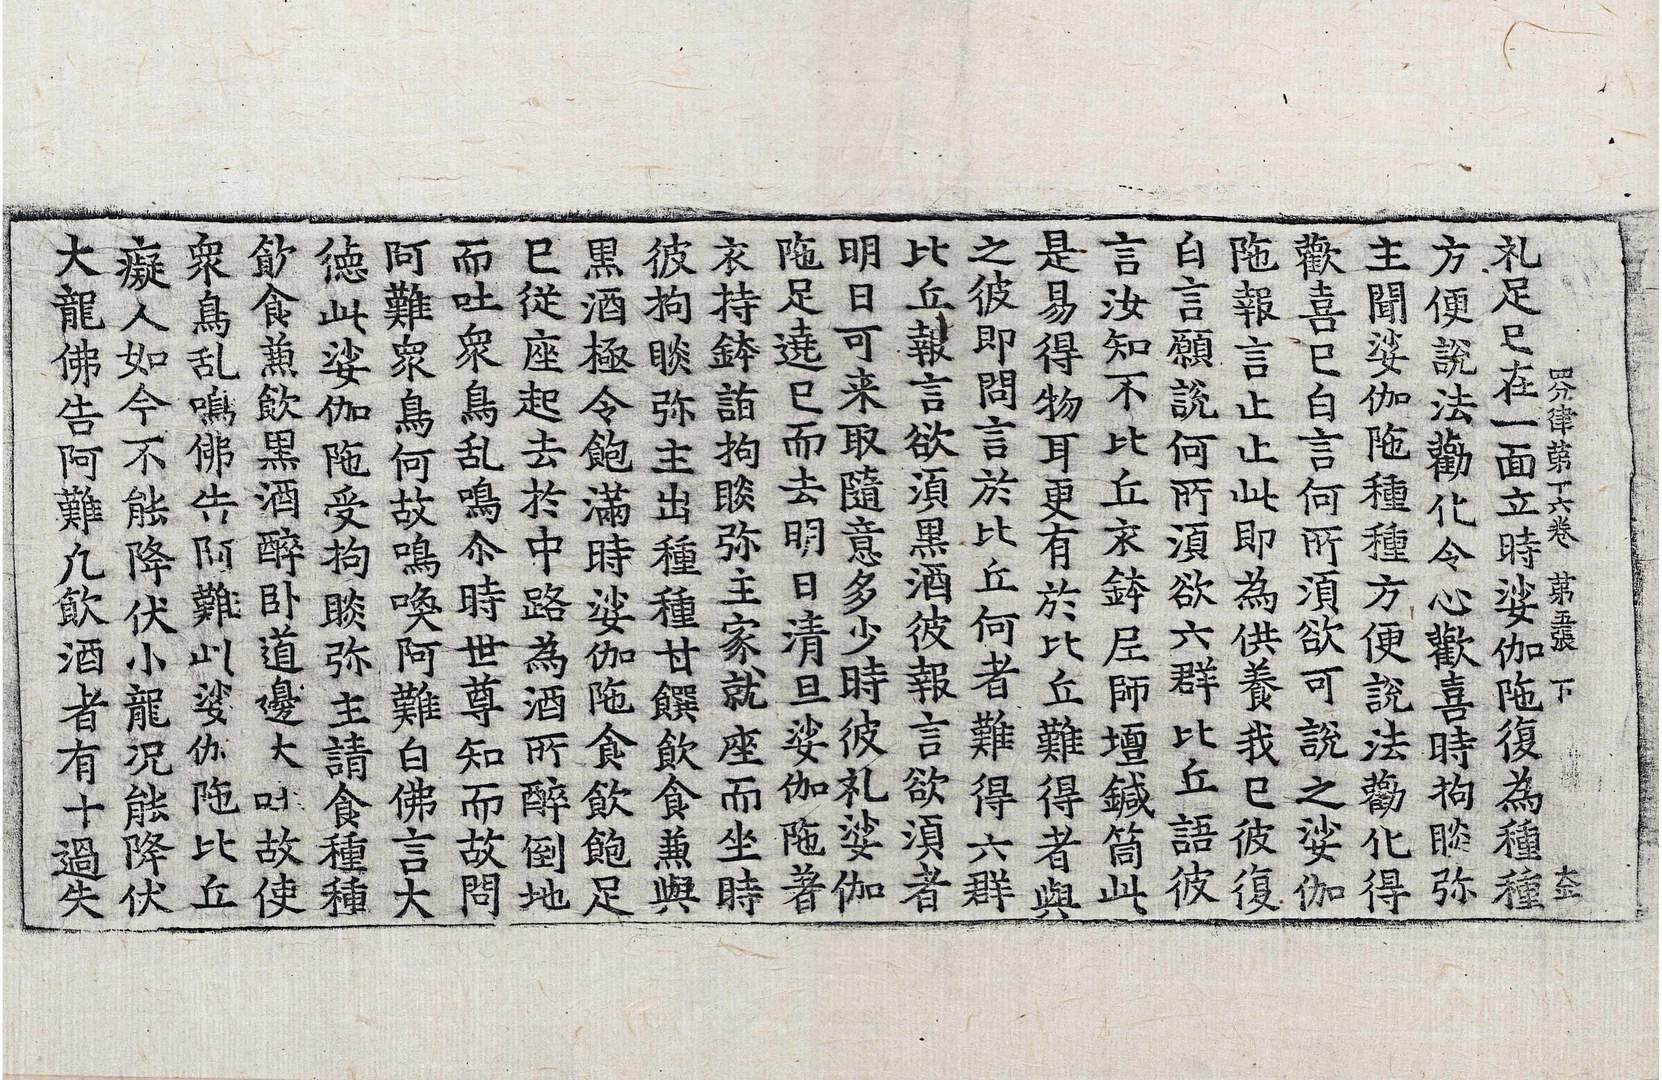 四分律第十六卷 第五張 下
礼足已在一面立時娑伽陁復為種種
方便說法勸化令心歡喜時拘睒弥
主聞娑伽陁種種方便說法勸化得
歡喜已白言何所須欲可說之娑伽
陁報言止止此即為供養我已彼復
白言願說何所須欲六群比丘語彼
言汝知不比丘衣鉢尼師壇鍼筒此
是易得物耳更有於比丘難得者與
之彼即問言於比丘何者難得六群
比丘報言欲須黒酒彼報言欲須者
明日可来取隨意多少時彼礼娑伽
陁足遶已而去明日清旦娑伽陁著
衣持鉢詣拘睒弥主家就座而坐時
彼拘睒弥主出種種甘饌飲食兼與
黒酒極令飽滿時娑伽陁食飲飽足
已従座起去於中路為酒所醉倒地
而吐衆鳥乱鳴尒時世尊知而故問
阿難衆鳥何故鳴喚阿難白佛言大
徳此娑伽陁受拘睒弥主請食種種
飲食兼飲黒酒醉卧道邊大吐故使
衆鳥乱鳴佛告阿難此娑伽陁比丘
癡人如今不能降伏小龍況能降伏
大龍佛告阿難凡飲酒者有十過失